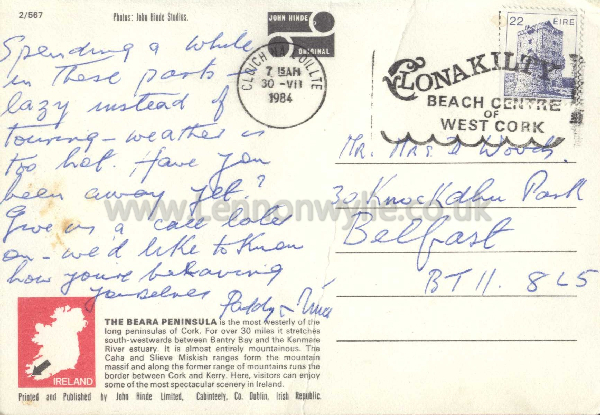 2/567
Photos: John Hinde Studios.
JOHN HINDE
ORIGINAL
CLOICH NA COILLTE
7 15AM
30-VII
1984
CLONAKILTY
BEACH CENTRE
OF
WEST CORK
22 EIRE
Spending a while
in these parts -
lazy instead of
touring - weather is
too hot. Have you
been away yet?
Give us a call later
on - we'd like to know
how you're behaving
yourselves
Paddy & Una
Mr. Mrs. Woods,
Knockdhu Park
Belfast
BT11. 8LS
www.lennonwylie.co.uk
IRELAND
THE BEARA PENINSULA is the most westerly of the
long peninsulas of Cork. For over 30 miles it stretches
south-westwards between Bantry Bay and the Kenmare
River estuary. It is almost entirely mountainous. The
Caha and Slieve Miskish ranges form the mountain
massif and along the former range of mountains runs the
border between Cork and Kerry. Here, visitors can enjoy
some of the most spectacular scenery in Ireland.
Printed and Published by John Hinde Limited, Cabinteely, Co. Dublin, Irish Republic.